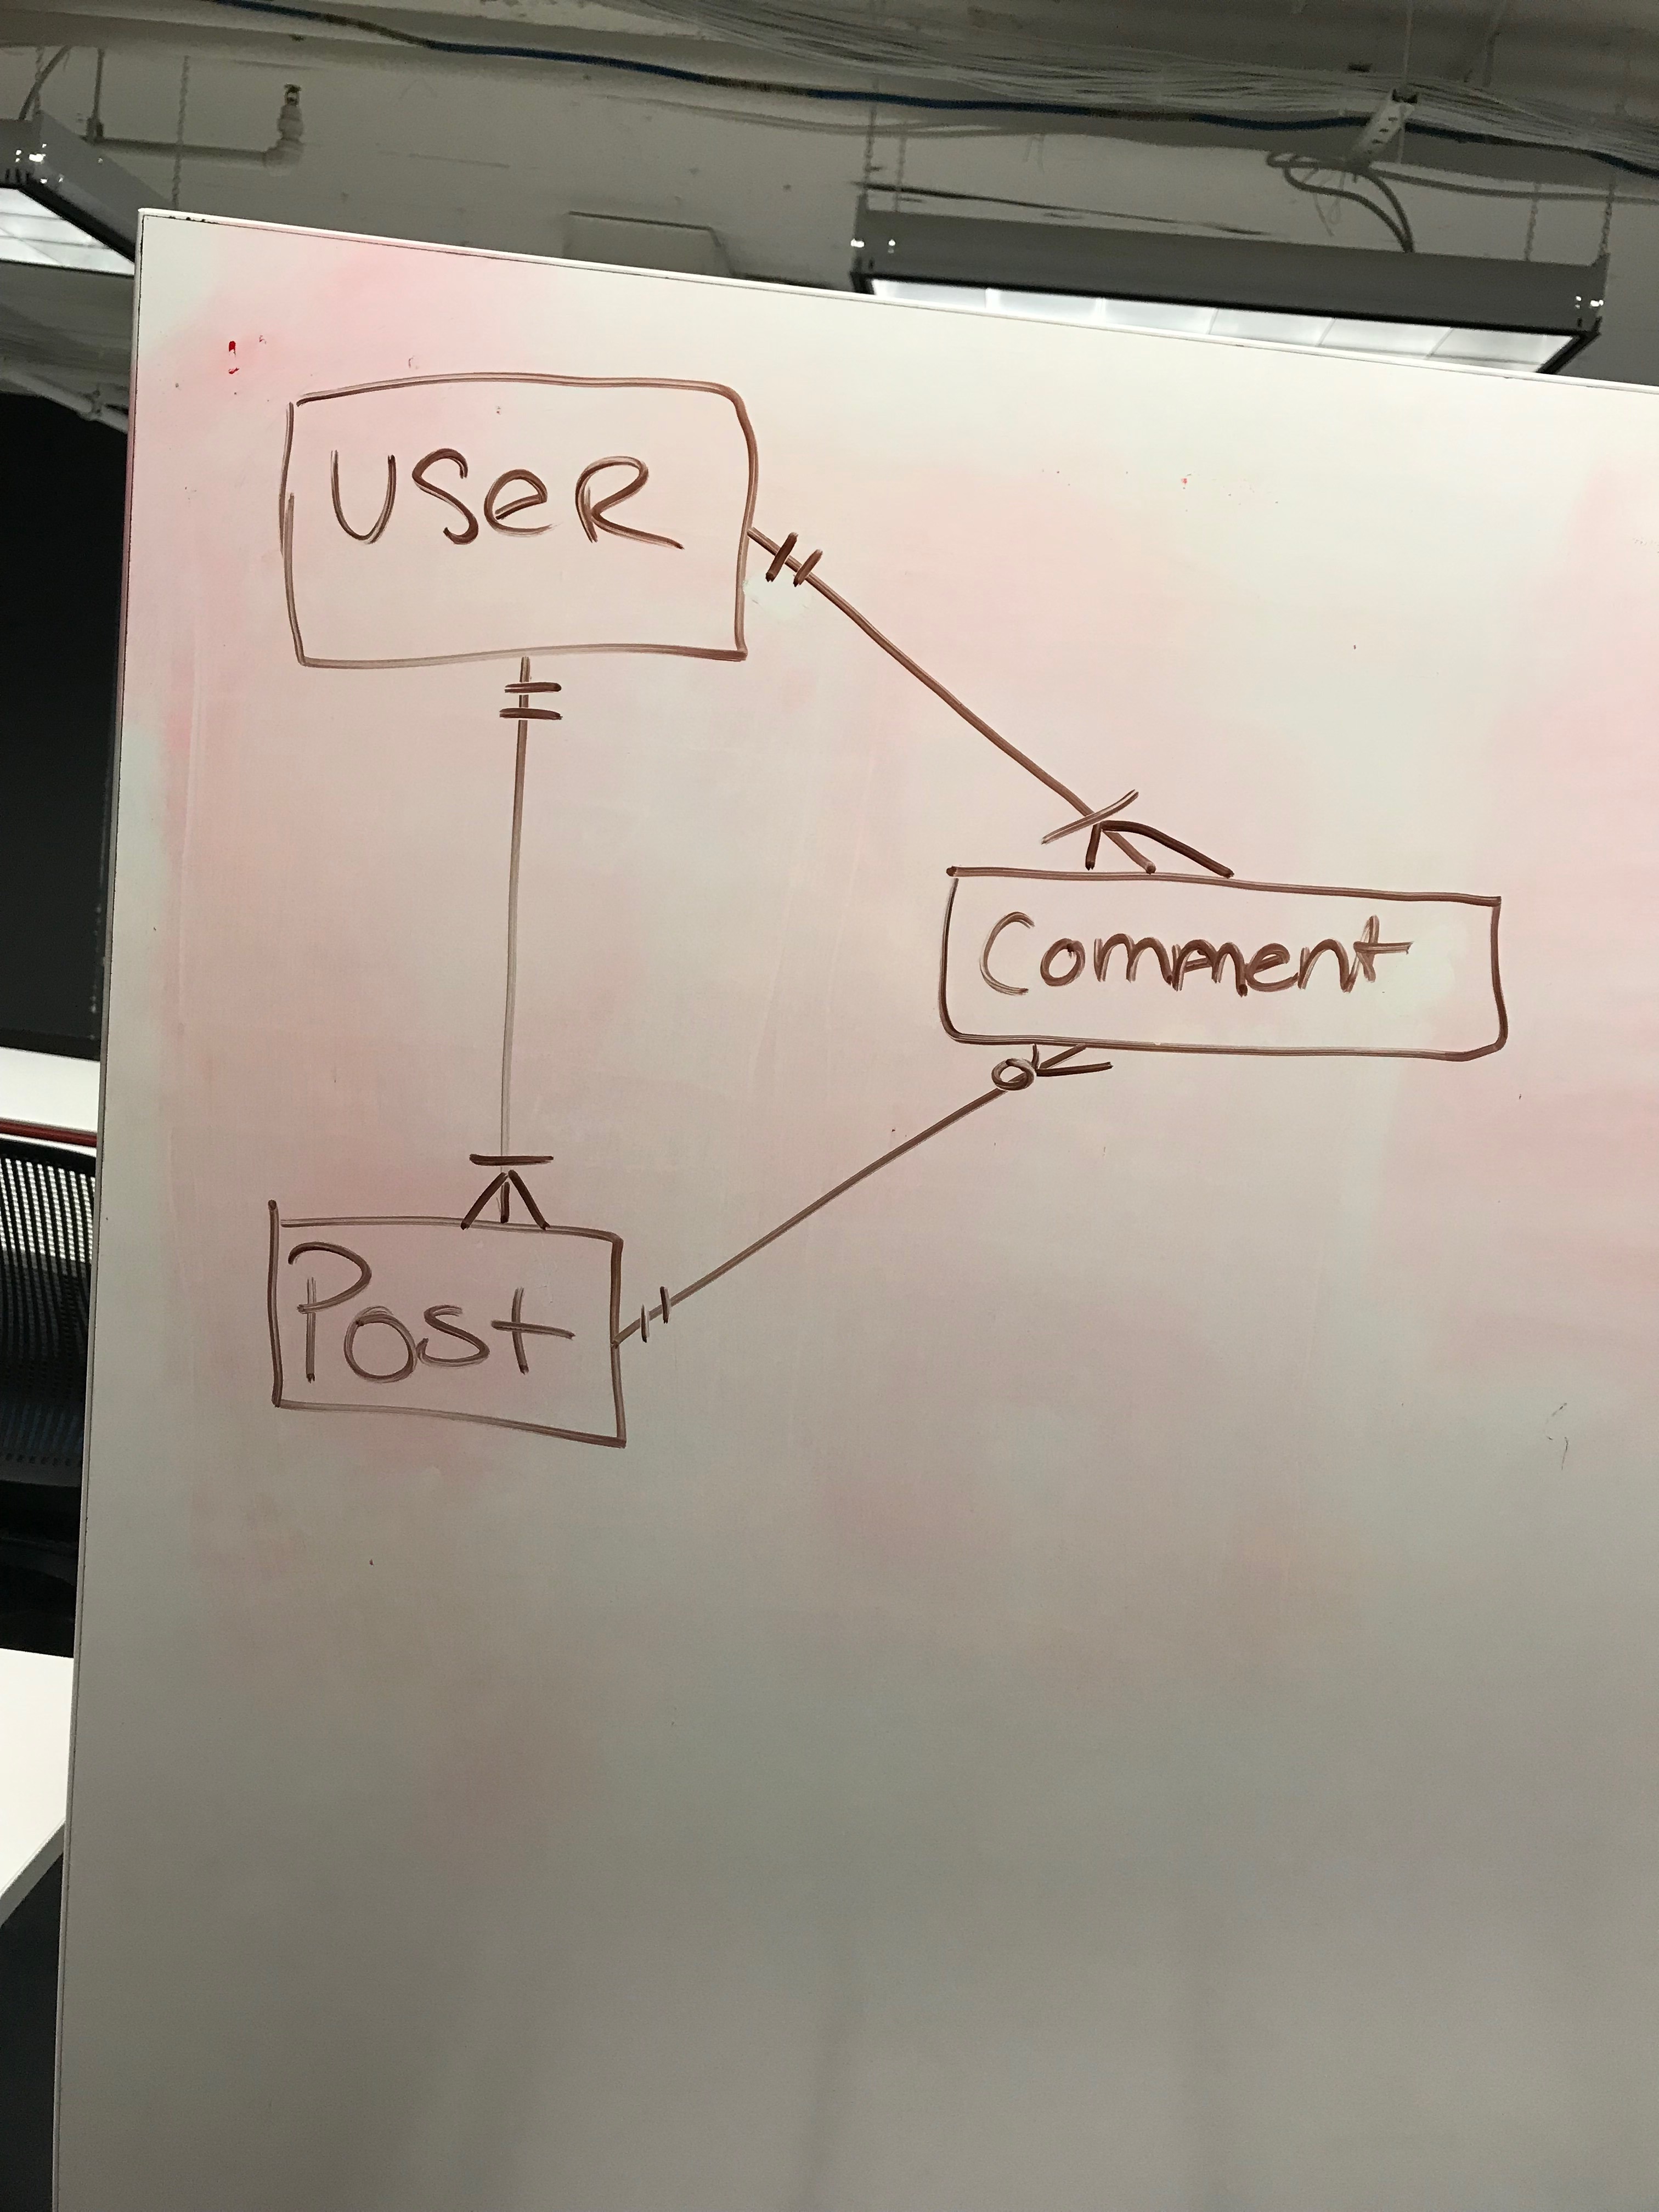 User
Comment
Post